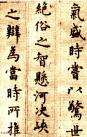 氣盛時嘗以驚世
絕俗之智懸河決峽
之辯為當時所推